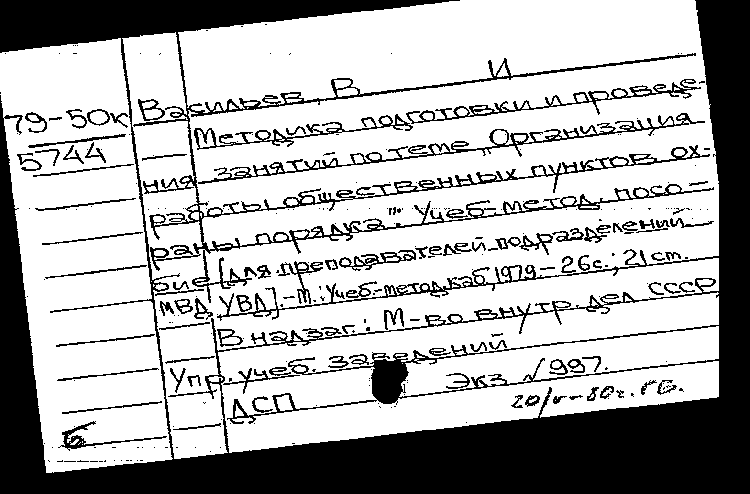 79-50к
5744
Васильев, В И
Методика подготовки и проведе-
ния занятий по теме „Организация
работы общественных пунктов ох-
раны порядка". Учеб.-метод. посо-
бие [для преподавателей подразделений
МВД, УВД].-М.: Учеб.-метод. каб, 1979.- 26с.; 21 см.
В надзаг.: М-во внутр. дел СССР,
Упр. учеб. заведений
ДСП Экз №997.
20/V-80г.
б